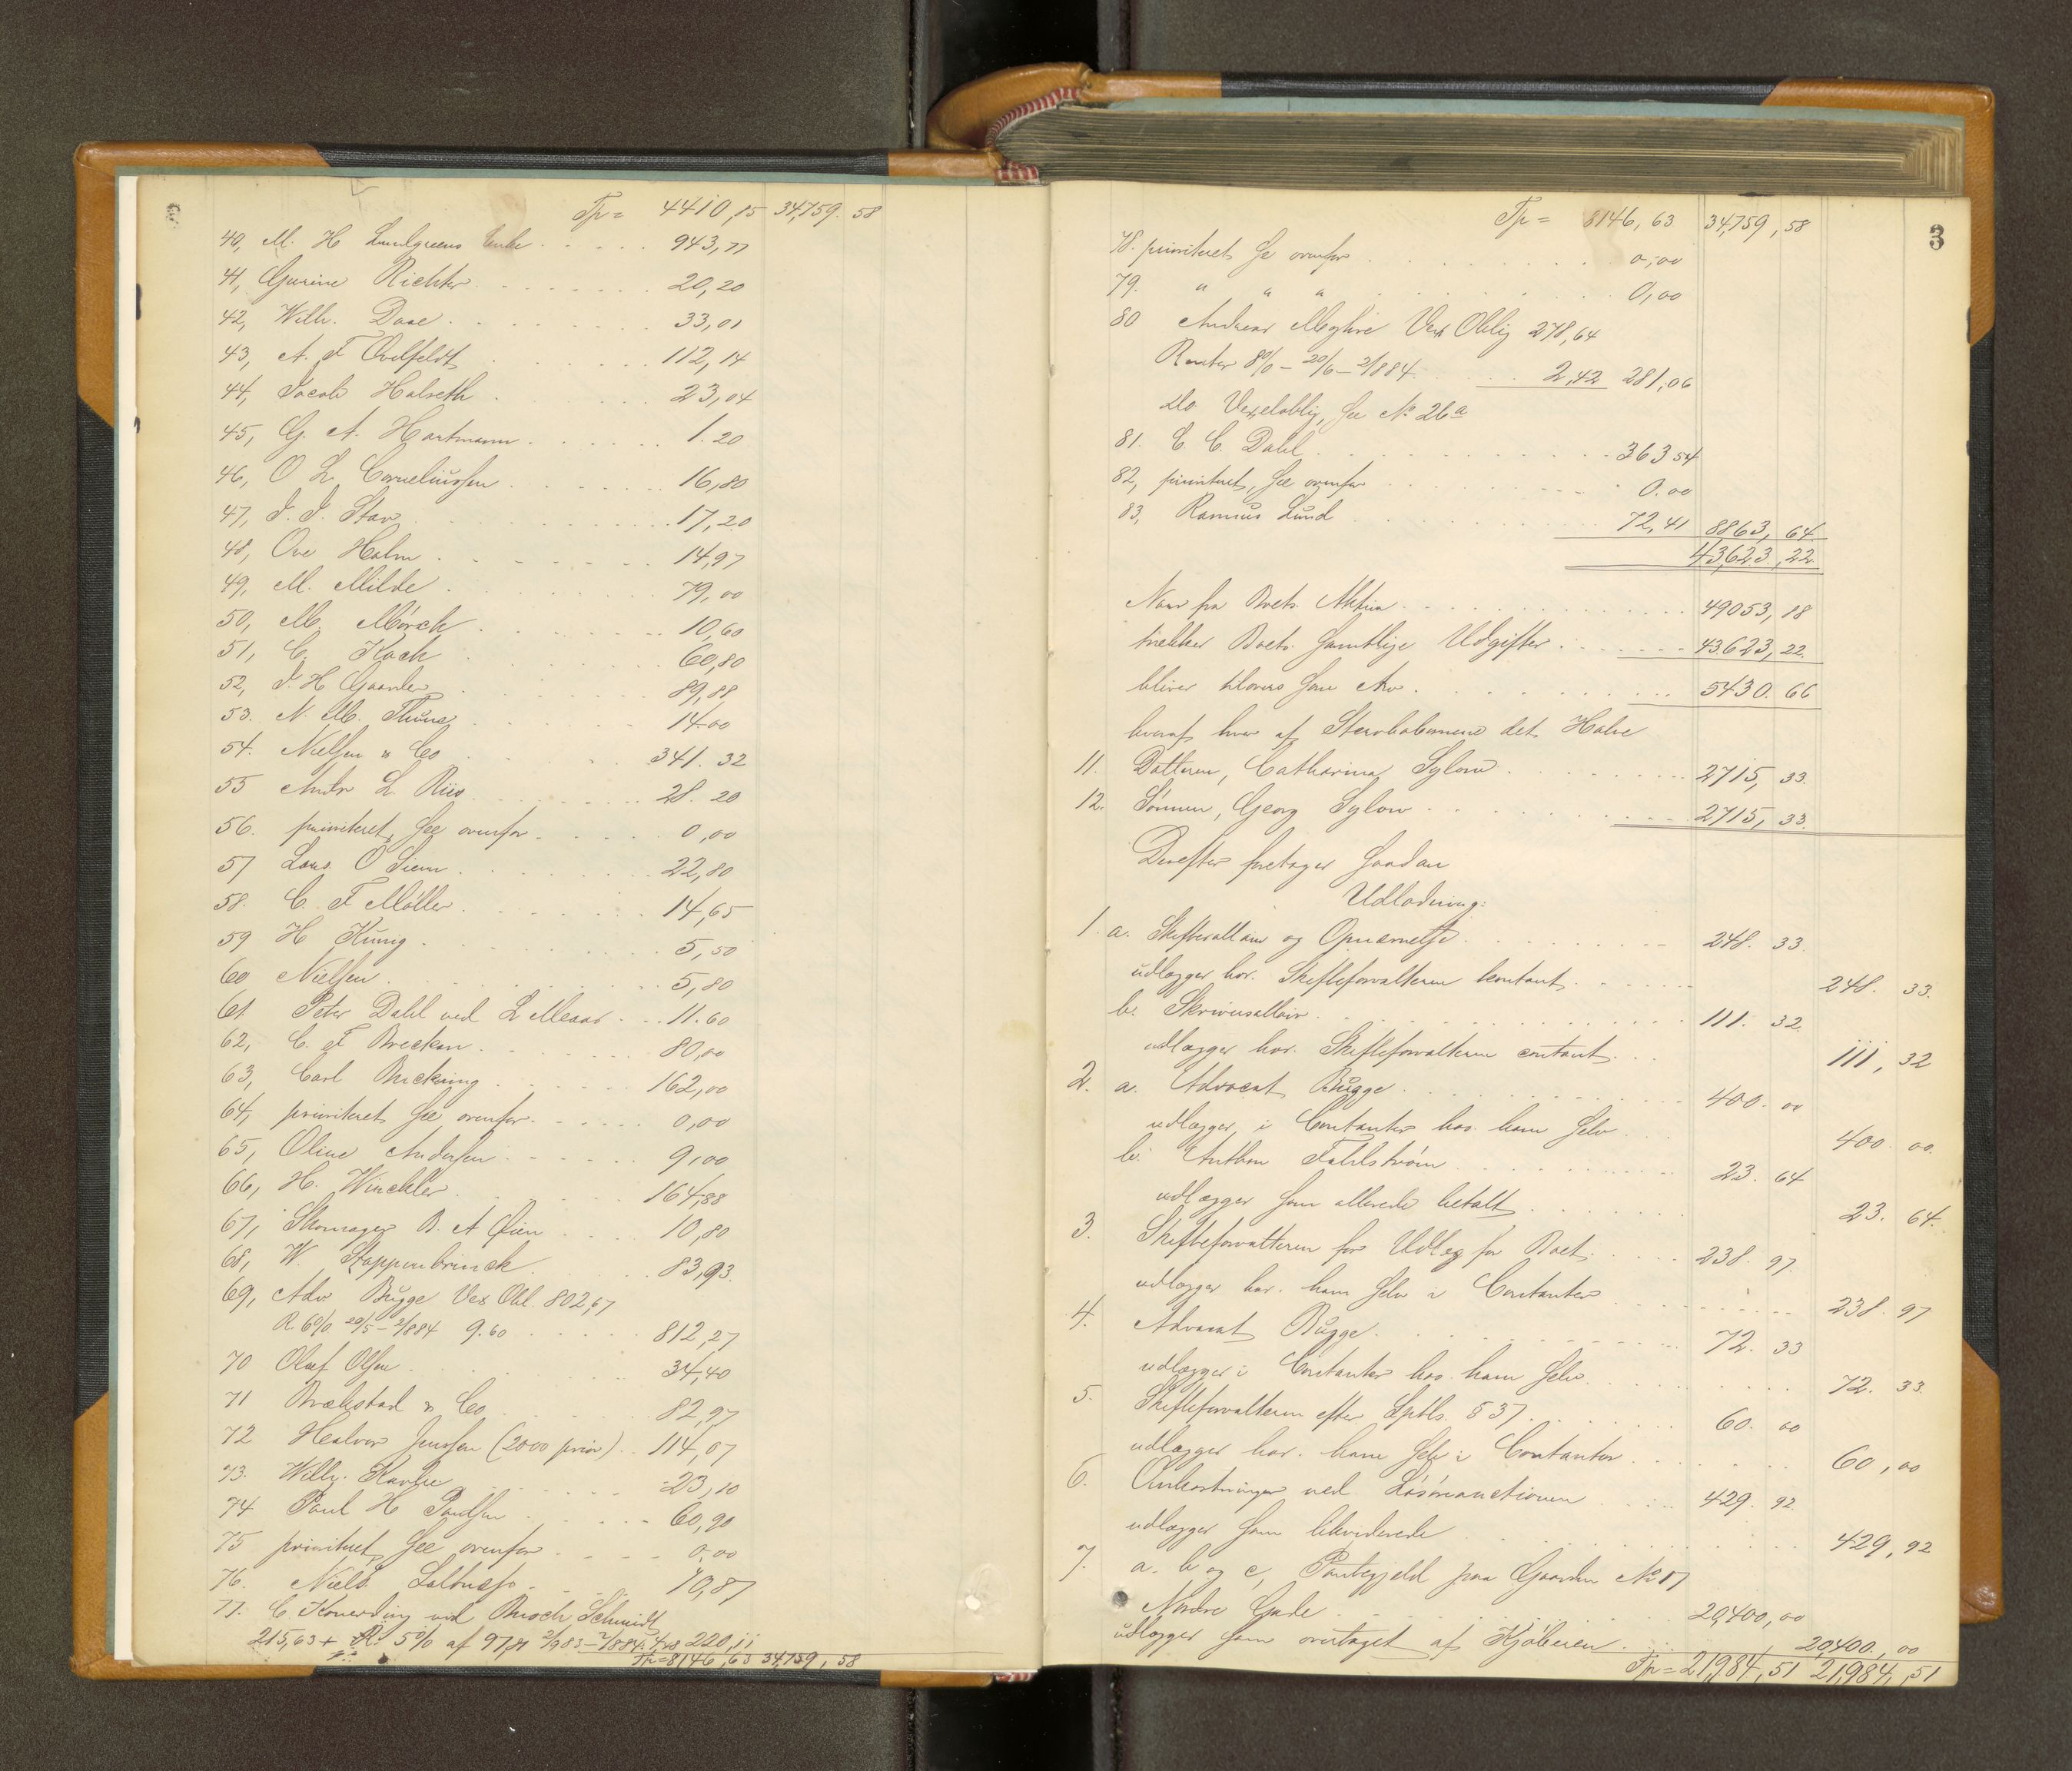 Tp = 4410,15 34,759. 58
40, M. H Lundgreens Enke 943,77
41, Gurine Richter 20,20
42, Wilh. Daae 33,01
43, A. F Ovelfeldt 112,14
44, Jacob Halseth 23,04
45, G. A. Hartmann 1.20
46, O L Corneliussen 16,80
47, J. J. Stav 17,20
48, Ove Holm 14,97
49, M. Milde 79,00
50, M. Mørch 10,60
51, C. Koch 60,80
52, J. H Gaarder 89,88
53. N. M. Thune 14.00
54. Nielsen & Co 341. 32
55 Andr L. Riis 28. 20
56. prioriteret, See ovenfor 0,00
57 Lars O Siem 22,80
58. C. F Møller 14,65
59 H Kunig 5,50
60 Nielsen 5,80
61 Peter Dahl ved L 11.60
62, C. F Breckan 80,00
63, Carl 162,00
64, prioriteret See ovenfor 0,00
65, Oline Andersen 9,00
66, H. Winckler 164,88
67, Skomager B. A Øien 10,80
68, W. Stoppenbrinck 83,93.
69, Adv Bugge Vex Obl. 802,67
R 6% 20/5 - 2/884 9.60 812,27
70 Oluf Olsen 34,40
71 Brækstad & Co 82,97
72 Halvor Jenssen (2000 prior) 114,07
73. Willy. 23,10
74 Paul H Paulsen 60,90
75 prioriteret, See ovenfor 0,00
76. Niels 70,87
77. C ved Busch Schmidt
215,63 + R. 5% af 97,81 2/983 - 2/884. 4,48 220,11
Tp = 8146,63 34,759, 58
3
Tp = 8146,63 34,759,58
78. prioriteret See ovenfor 0,00
79. " " " 0,00
80 Andreas Vex Oblig 278,64
Renter 8% - 20/6 - 2/884 2,42 281,06
do Vexeloblig, See No 26a
81. C. C. Dahl 363 54
82, prioriteret, See ovenfor 0.00
83, Rasmus Lund 72,41 8863, 64
43,623,22
Naar fra Boets Aktiva 49053,18
trækkes Boets Samtlige Udgifter 43623,22.
bliver tilovers som Arv 5430. 66
hvoraf hver af Stervbobørnene det Halve
11. Datteren, Catharina Sylow 2715, 33.
12. Sønnen, Georg Sylow 2715, 33.
Derefter foretages Saadan
Udlodning:
1. a. Skiftesallair og Opnævnelse 248. 33.
udlægges hos Skifteforvalteren kontant 248. 33.
b. Skriversallair 111. 32
udlægges hos. Skifteforvalteren contant 111, 32
2. a. Advocat Bugge 400. 00
udlægges i Contanter hos ham Selv 400. 00.
b. Anthon Fahlstrøm 23. 64
udlægges Som allerede betalt 23. 64.
3. Skifteforvalteren for Udlæg for Boet. 238. 97.
udlægges hos. ham Selv i Contanter 238. 97
4. Advocat Bugge 72. 33
udlægges i Contanter hos ham Selv 72. 33.
5. Skifteforvalteren efter Sptls. § 37 60. 00
udlægges hos. ham Selv i Contanter 60,00
6. Omkostninger ved Løsøreauctionen 429. 92.
udlægges Som likviderede 429, 92
7. a. b og c, Pantegjeld paa Gaarden No 17
Nordre Gade 20,400,00
udlægges Som overtaget af Kjøberen 20400,00
Tp = 21,984,51 21,984,51